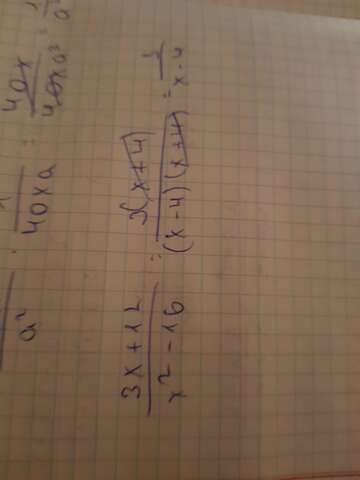 a² : 40xa : 40x / 40xa² = 1 / a²
3x+12 / x²-16 = 3(x+4) / (x-4)(x+4) = / x-4